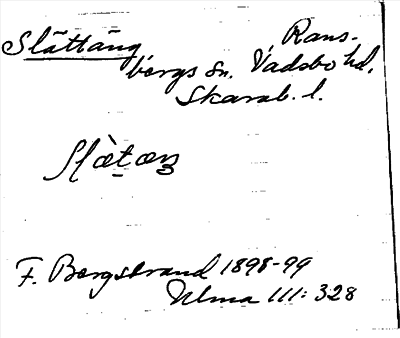 Slättäng Rans-
bergs sn. Vadsbo hd.
Skarab. l.
F. Bergstrand 1898-99
Ulma 111: 328